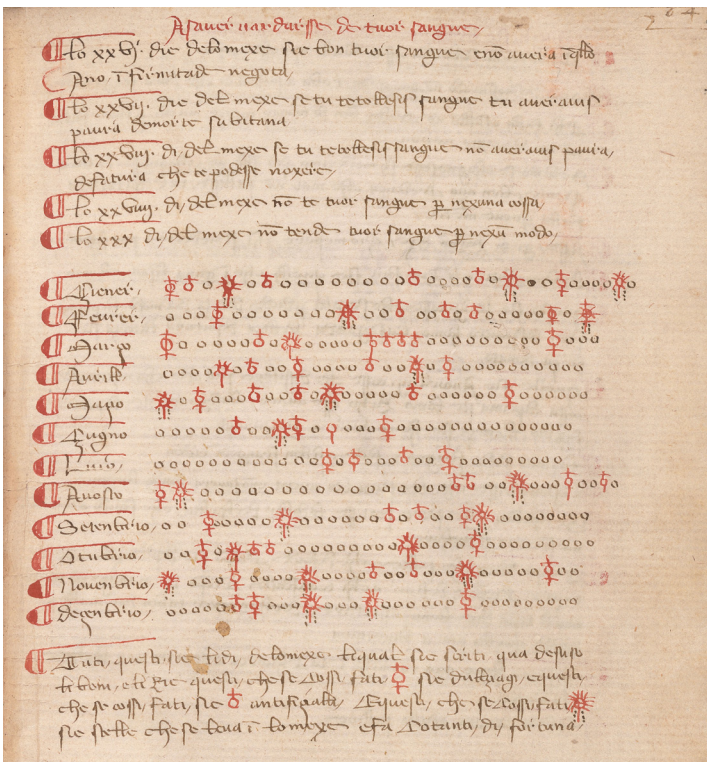 A saver vardarsse de tuor sangue
Lo xxvj. die delo mexe sie bon tuor sangue enō avera ī q̄llo
Ano. īfirmitade negota
Lo xxvij. die del mexe se tu te tollesis sangue tu averavis
paura de morte subitana
Lo xxviij. di, del mexe se tu te tollesis sangue nō averavis paura,
de fatura che te podesse noxere
Lo xxviiij. di, del mexe nō te tuor sangue p nexuna cossa
Lo xxx di, del mexe nō tende tuor sangue p nexū modo
Ciener
Fevrer
Março
Avrill
Maço
Çugno
Luio
Avosto
Setenbrio
Otubrio
Novenbrio
Deçenbrio
Tuti, questi, sie li di, delo mexe li qual sie scriti qua desuso
li boni, e li rie questi, che se cossi fati sie questi
che se cossi, fati, sie Questi, che se cossi, fati
sie stelle che se leva ī lo mexe e fa di, fortuna